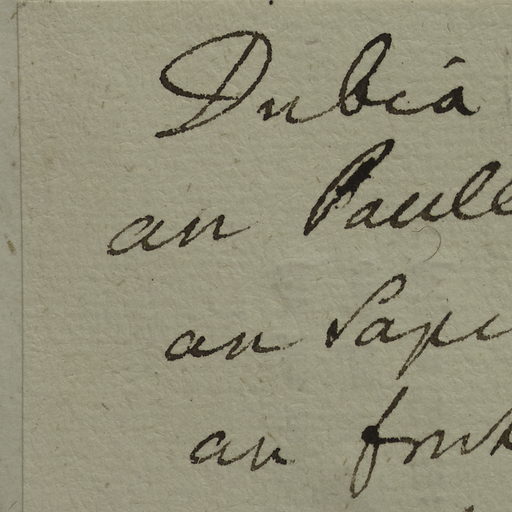 Dubia
an Paull
an Sapi
an fruk